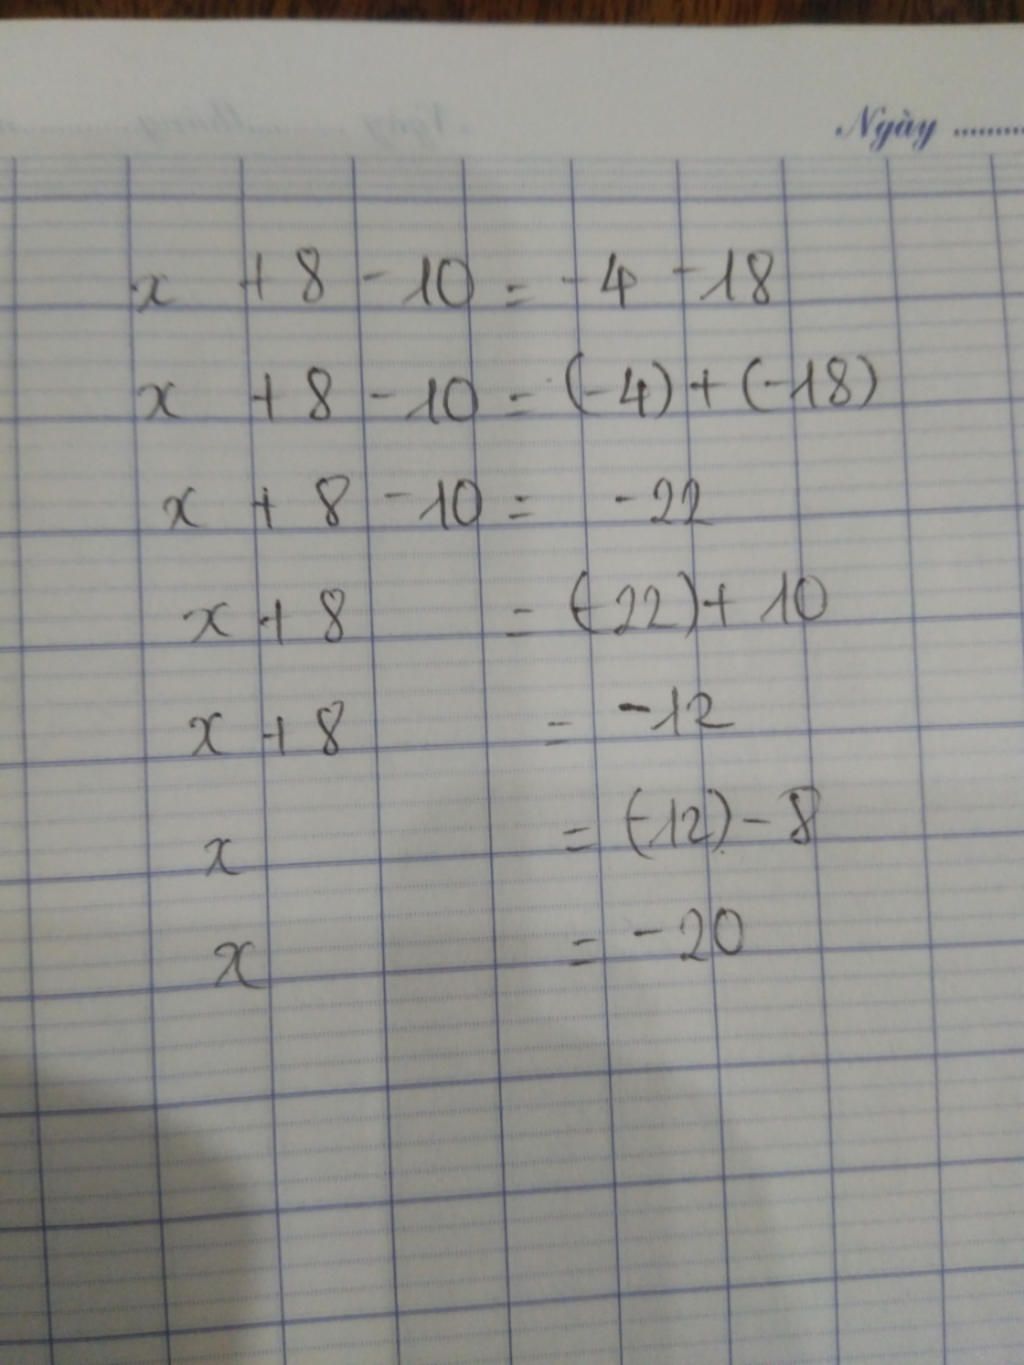 Ngày ..........
x + 8 - 10 = -4 - 18
x + 8 - 10 = (-4) + (-18)
x + 8 - 10 = -22
x + 8 = (-22) + 10
x + 8 = -12
x = (-12) - 8
x = -20